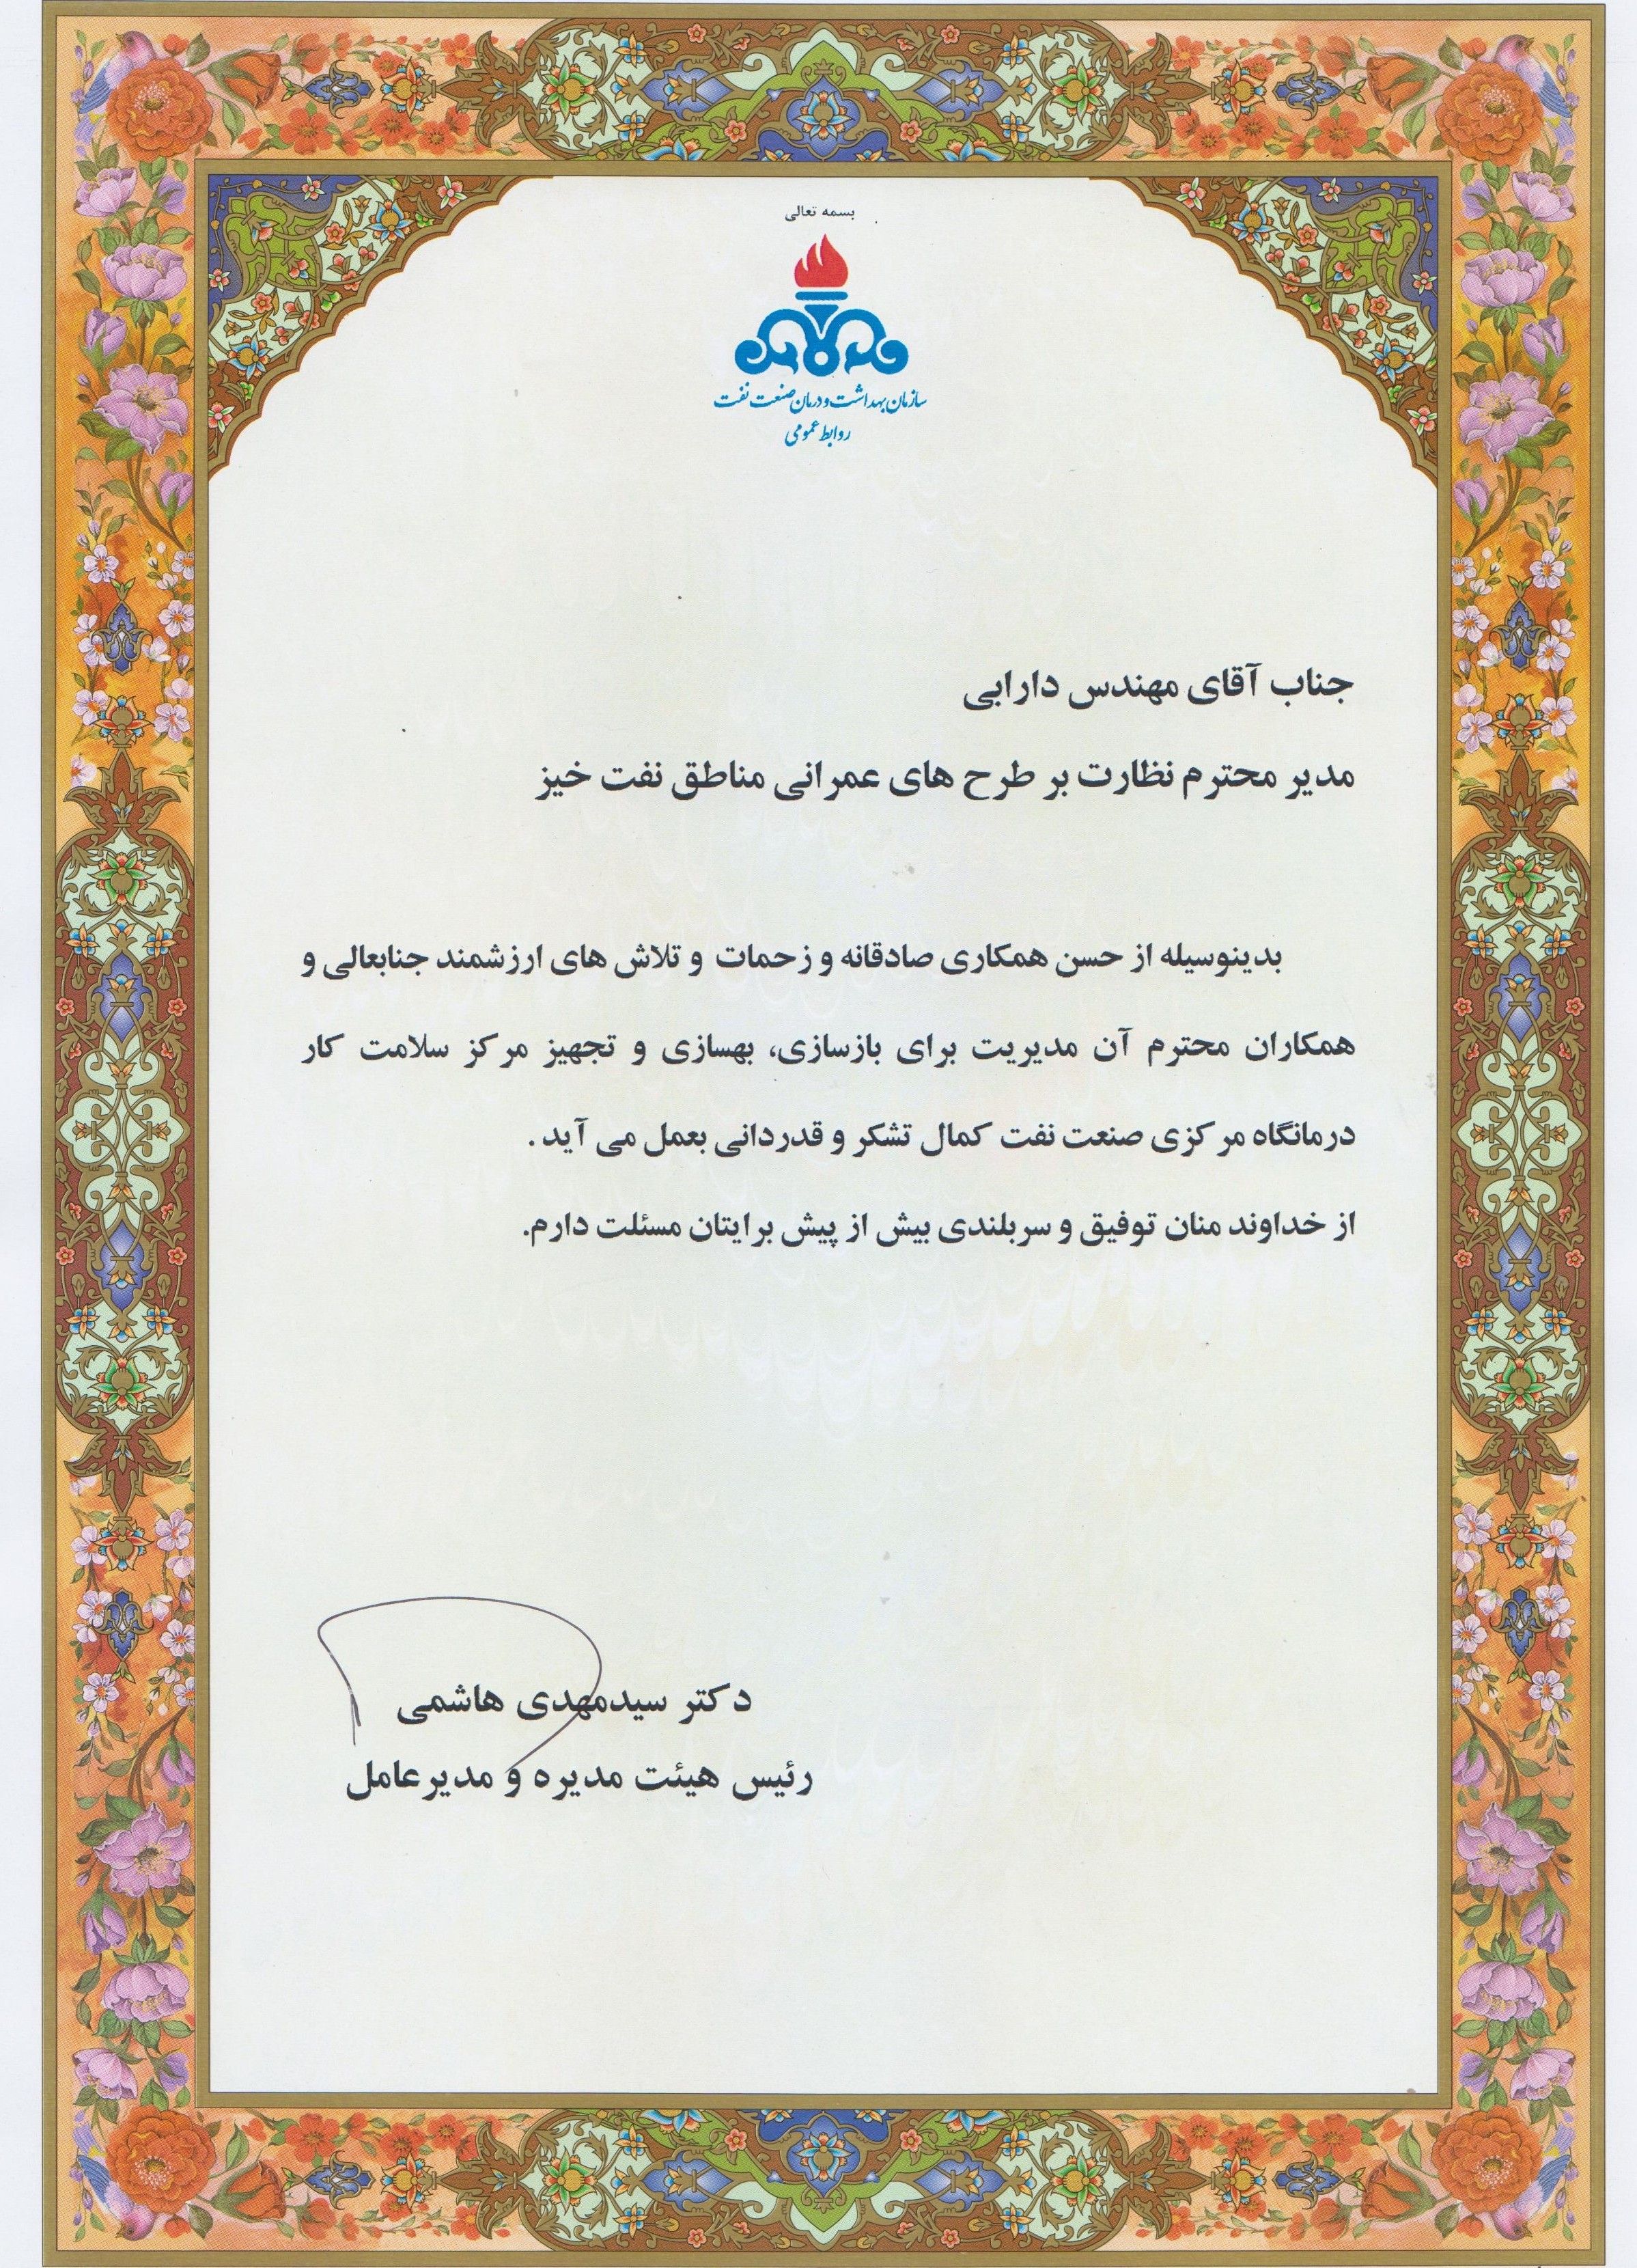 بسمه تعالی
سازمان بهداشت و درمان صنعت نفت
روابط عمومی
جناب آقای مهندس دارابی
مدیر محترم نظارت بر طرح های عمرانی مناطق نفت خیز
بدینوسیله از حسن همکاری صادقانه و زحمات و تلاش های ارزشمند جنابعالی و
همکاران محترم آن مدیریت برای بازسازی، بهسازی و تجهیز مرکز سلامت کار
درمانگاه مرکزی صنعت نفت کمال تشکر و قدردانی بعمل می آید .
از خداوند منان توفیق و سربلندی بیش از پیش برایتان مسئلت دارم.
دکتر سیدمهدی هاشمی
رئیس هیئت مدیره و مدیرعامل